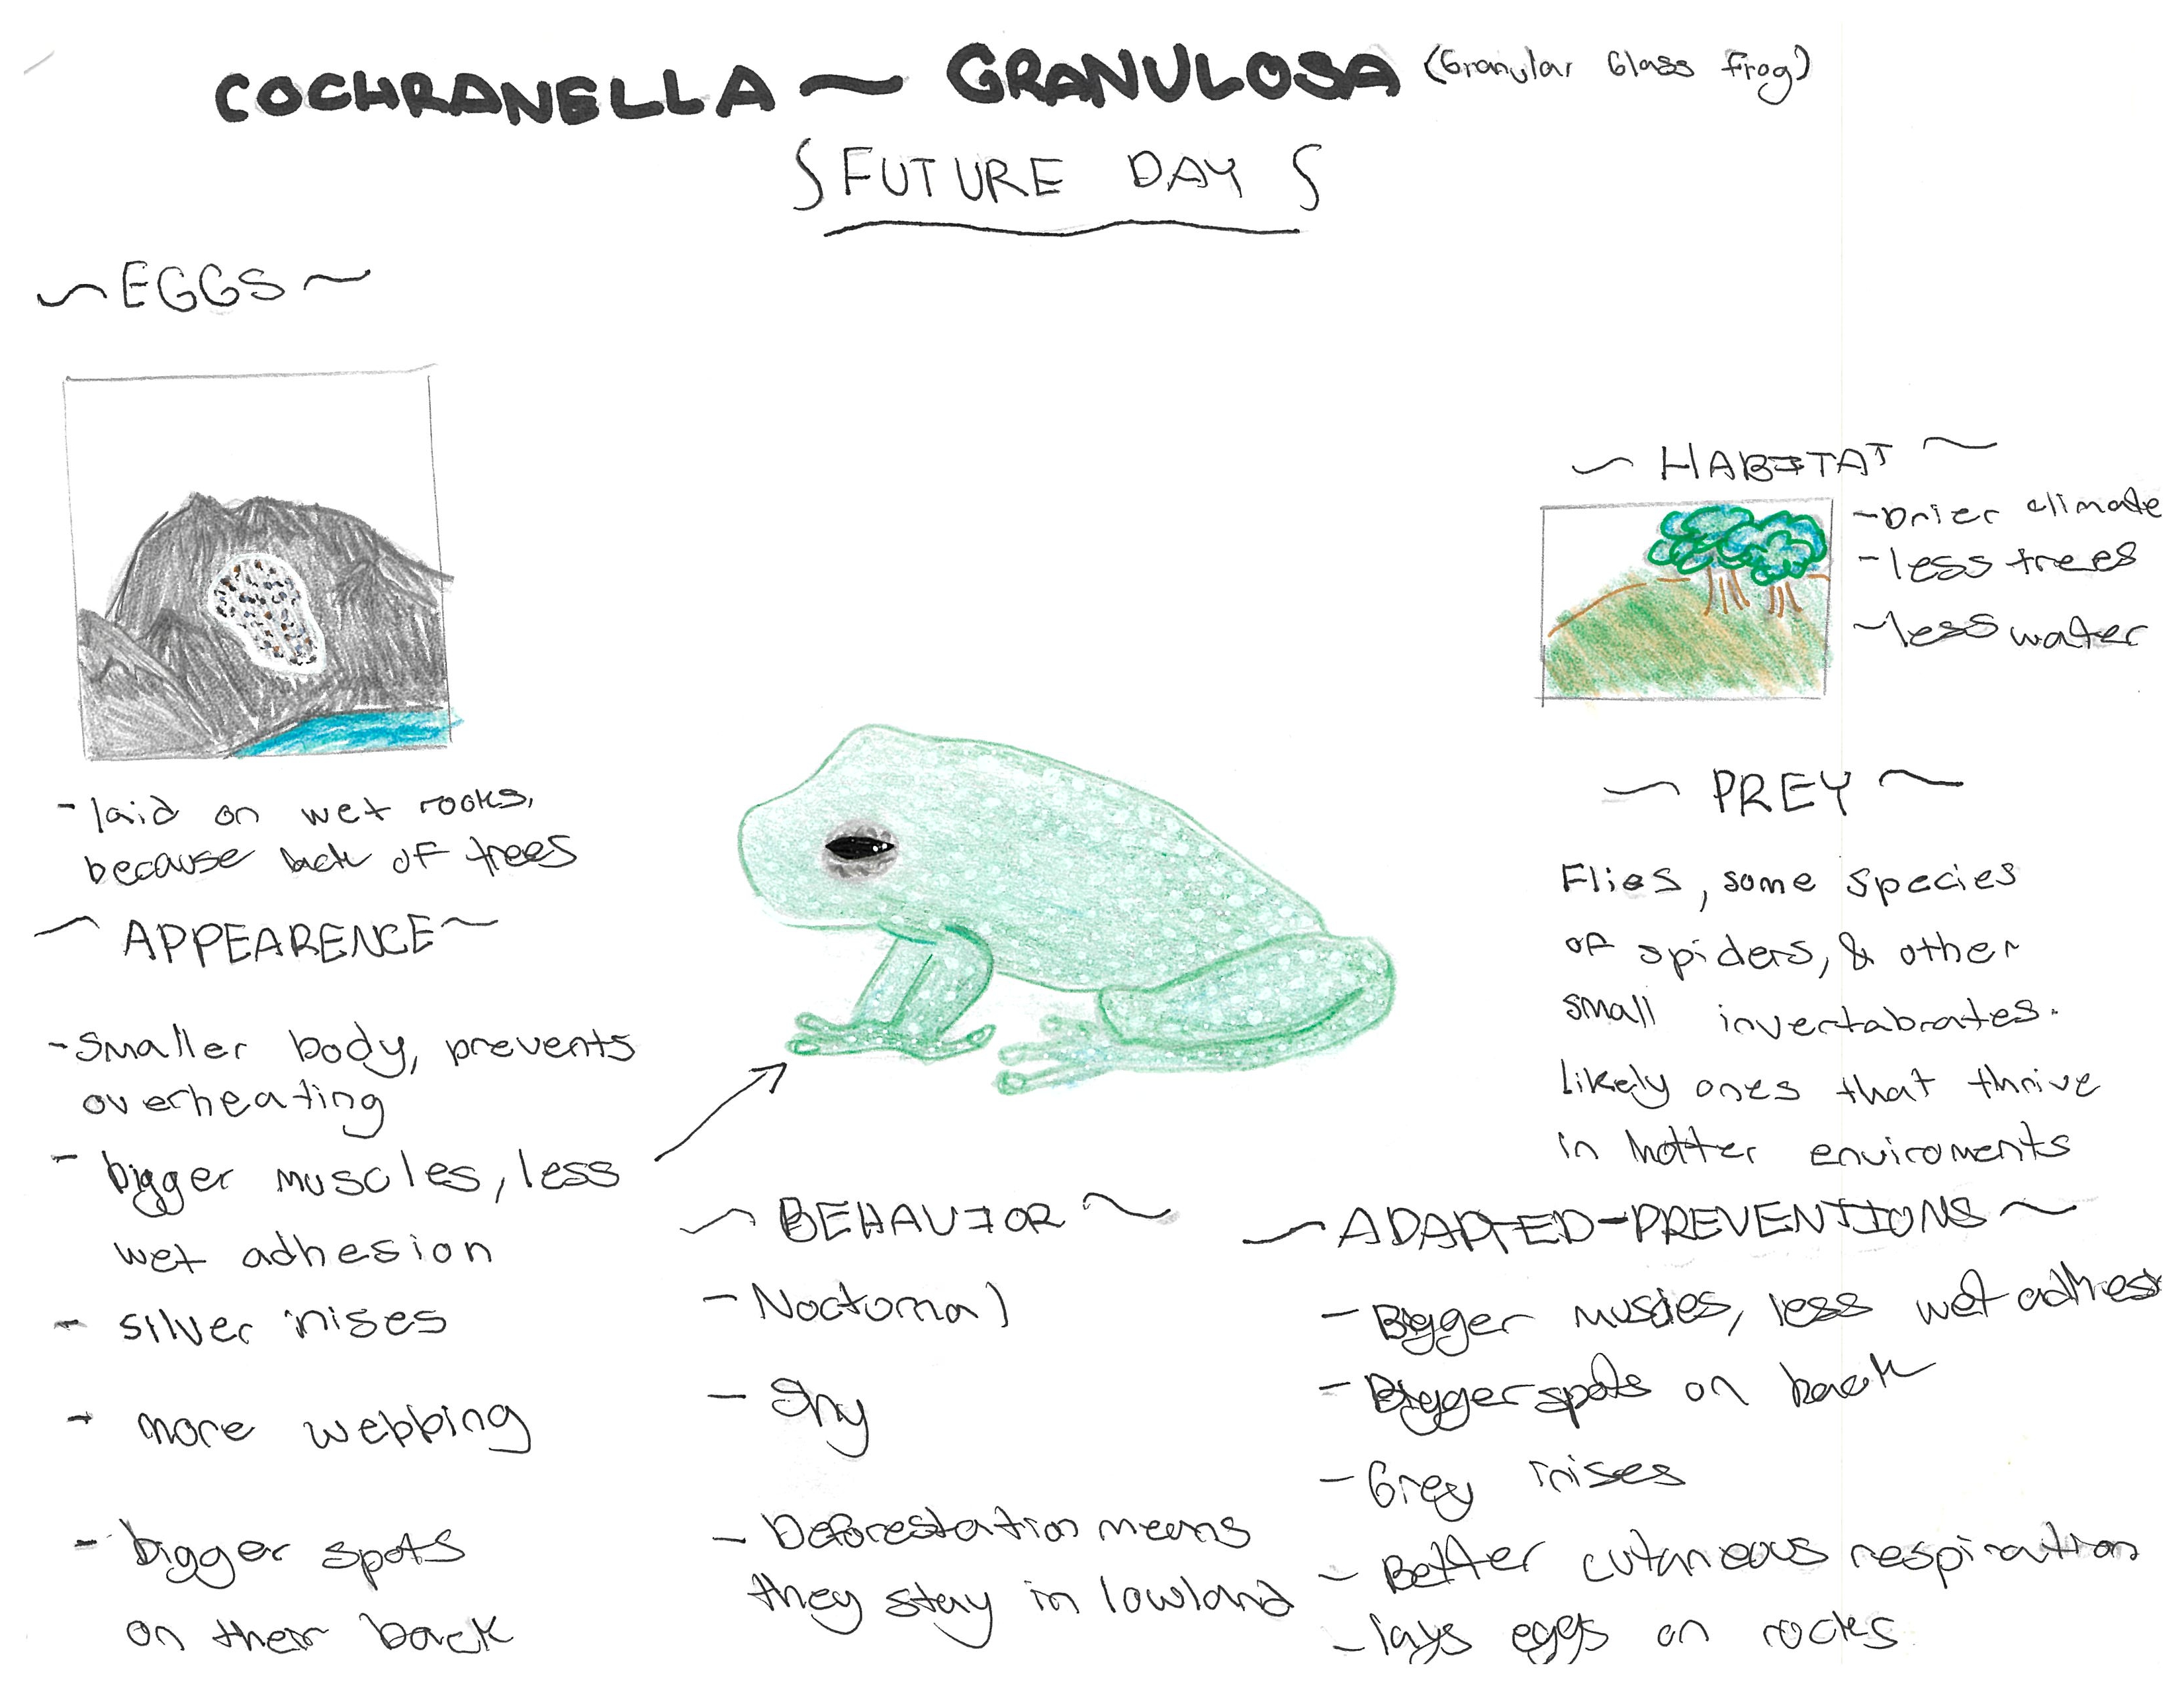 COCHRANELLA ~ GRANULOSA (Granular Glass Frog)
FUTURE DAY
~ EGGS ~
- laid on wet rocks,
because lack of trees
~ APPEARENCE ~
- Smaller body, prevents
overheating
- bigger muscles, less
wet adhesion
- silver irises
- more webbing
- bigger spots
on their back
~ BEHAVIOR ~
- Nocturnal
- Shy
- Deforestation means
they stay in lowland
~ HABITAT ~
- Drier climate
- less trees
- less water
~ PREY ~
Flies, some species
of spiders, & other
small invertabrates.
Likely ones that thrive
in hotter enviroments
~ ADAPTED-PREVENTIONS ~
- Bigger muscles, less wet adhes
- Bigger spots on back
- Grey irises
- Better cutaneous respiration
- lays eggs on rocks